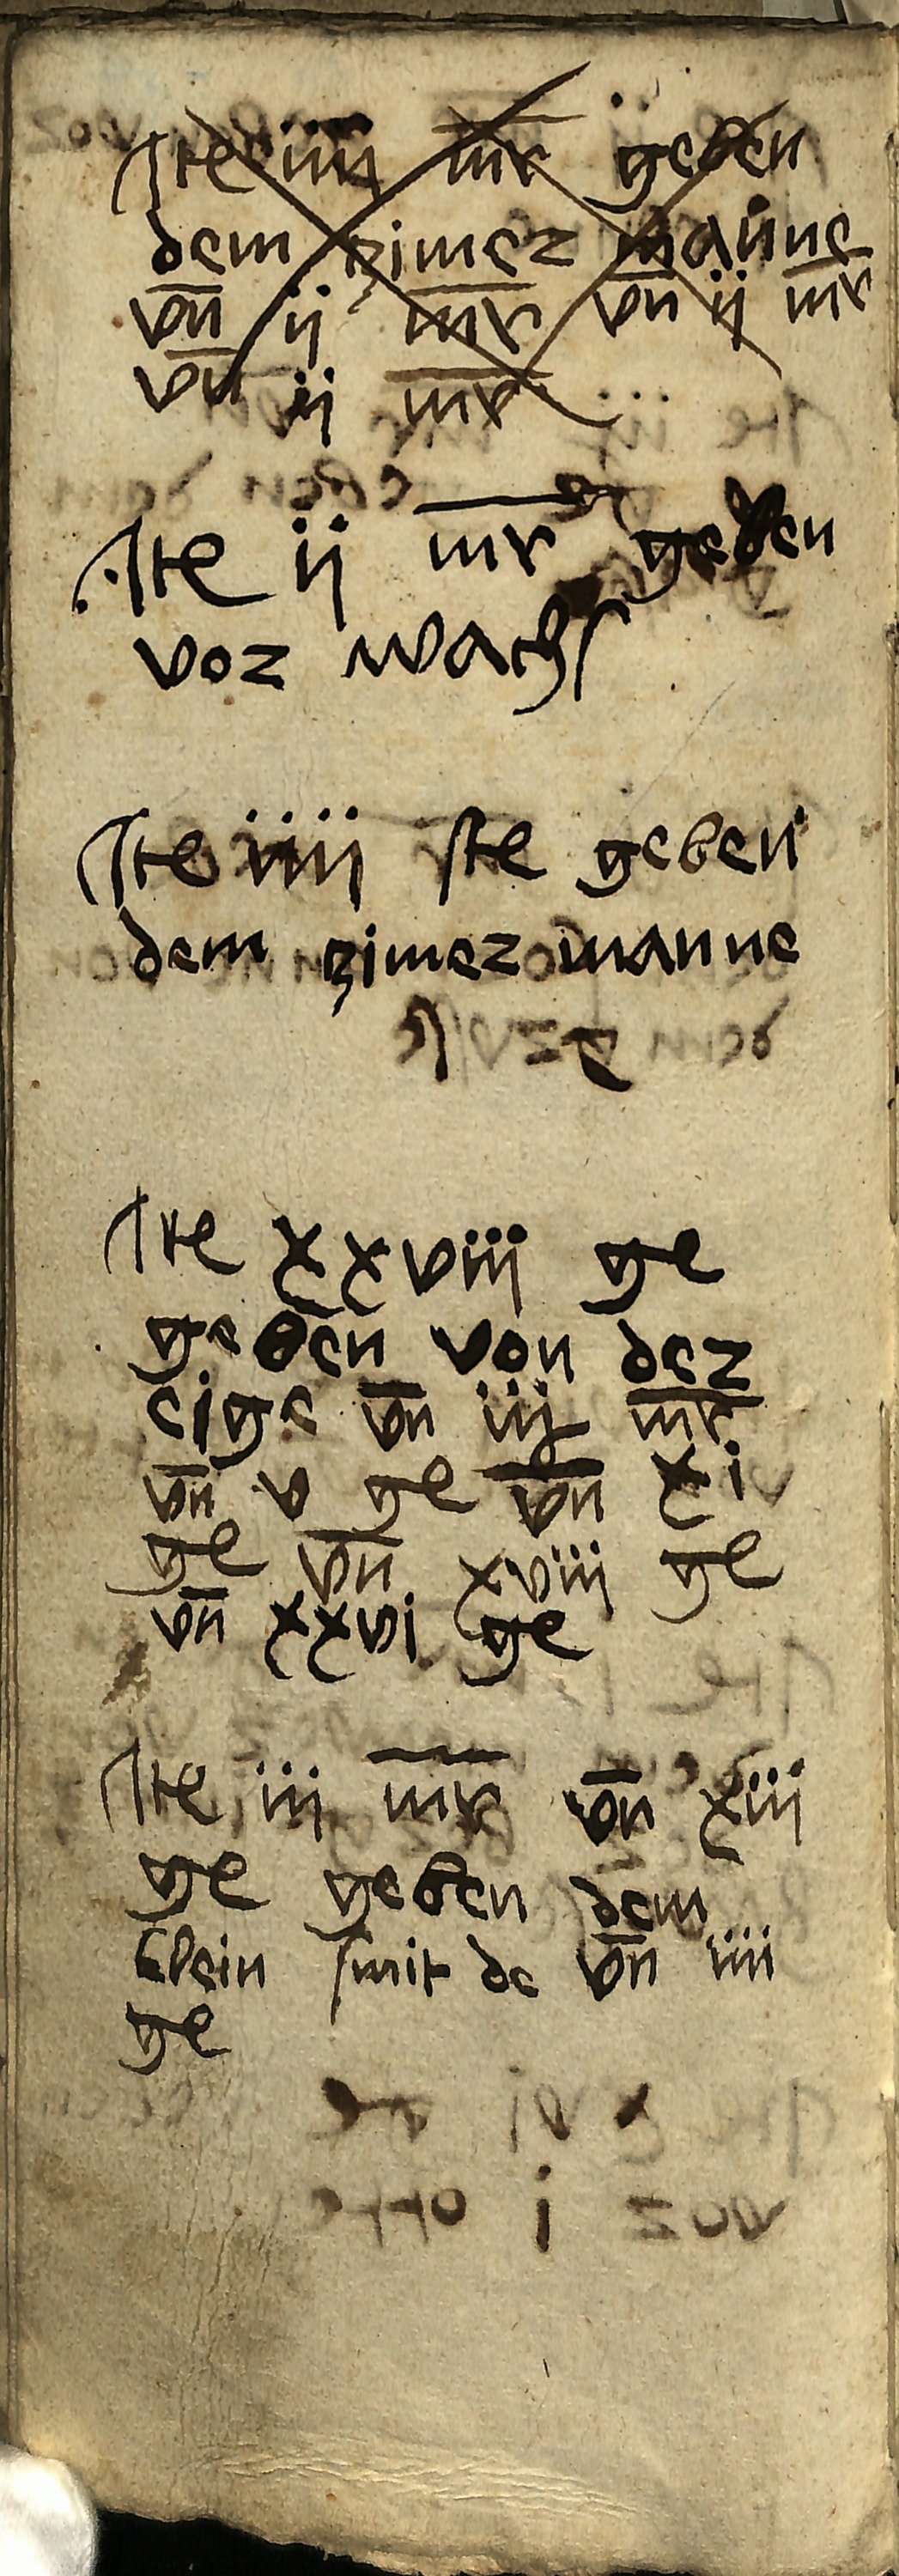 Ite iiij mr geben
dem zimer manne
vn̄ ij mr vn̄ ij mr
vn̄ ij mr
Ite ij mr geben
vor wachſ
Ite iiij ſte geben
dem zimer manne
Ite xxviij ge
geben von der
eige vn̄ iij mr
vn̄ v ge vn̄ xi
ge vn̄ xviij ge
vn̄ xxvi ge
Ite iij mr vn̄ xiij
ge geben dem
klein ſmit de vn̄ iiij
ge